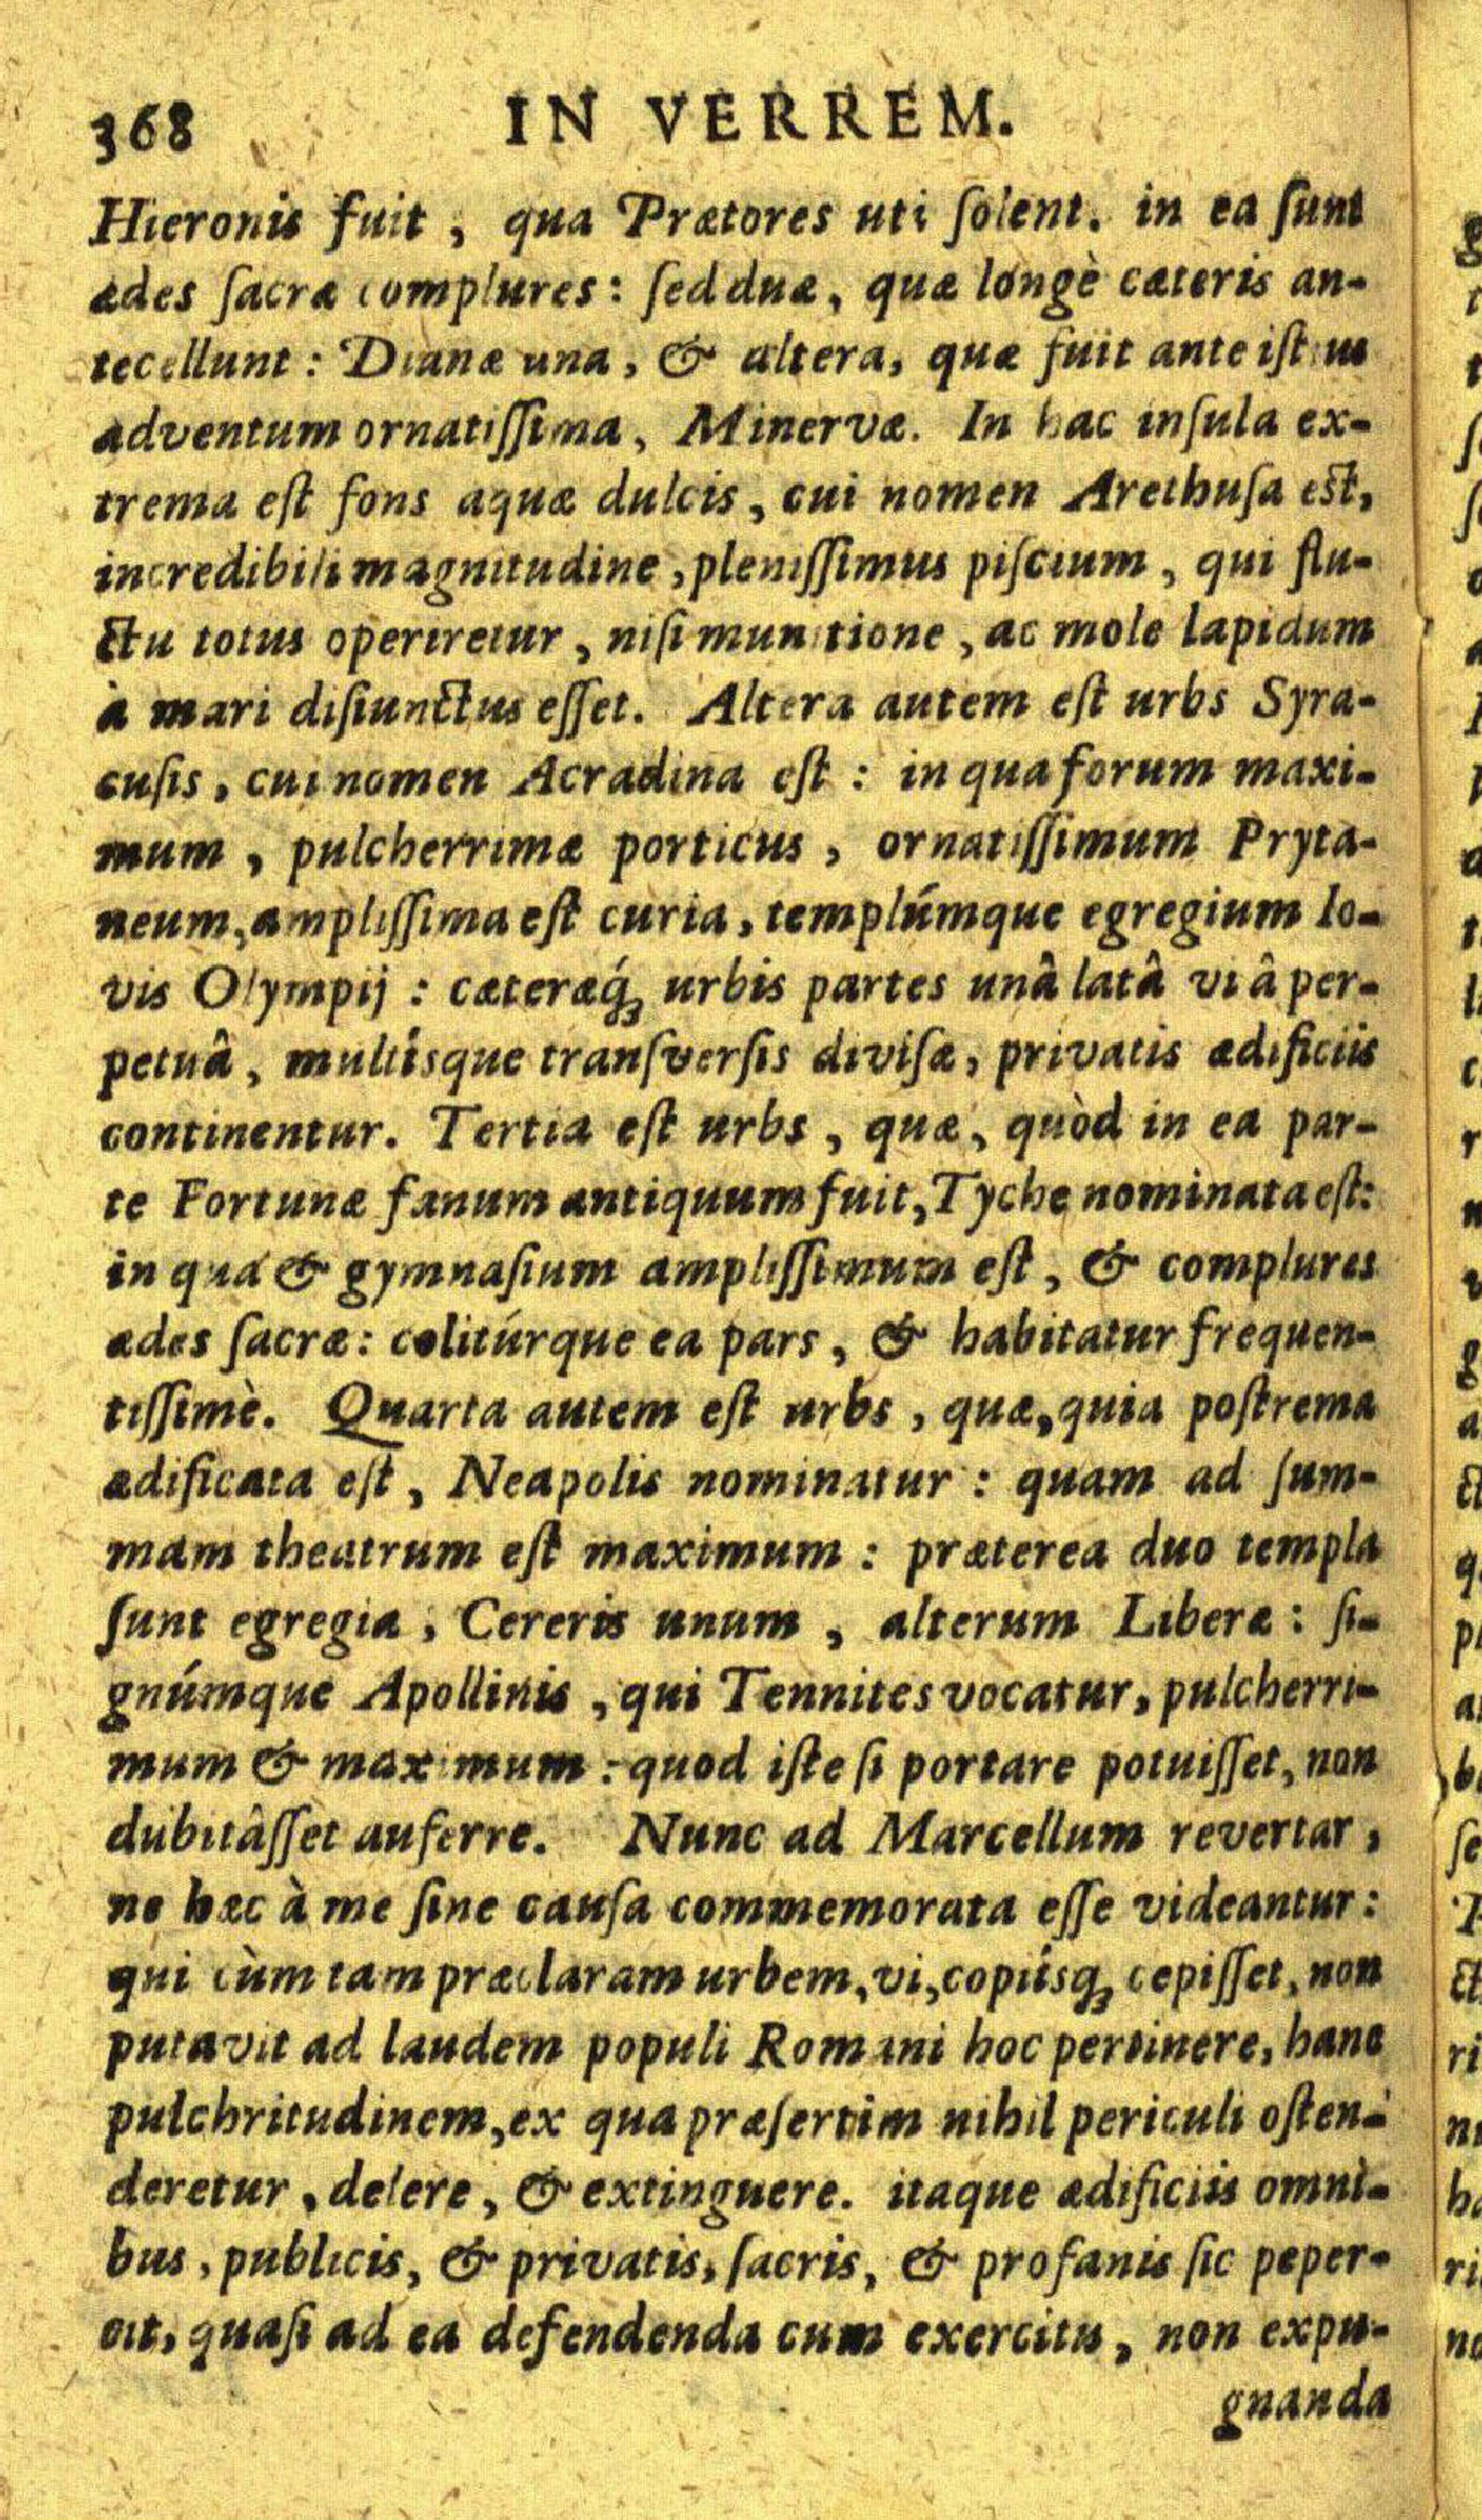 368 IN VERREM.
Hieronis fuit, qua Prætores uti ſolent. in ea ſunt
ædes ſacræ complures: ſed duæ, quæ longè cæteris an-
tecellunt: Dianæ una, & altera, quæ fuit ante iſtius
adventum ornatiſſima, Minervæ. In hac inſula ex-
trema eſt fons aquæ dulcis, cui nomen Arethuſa eſt,
incredibili magnitudine, pleniſſimus piſcium, qui flu-
ctu totus operiretur, niſi munitione, ac mole lapidum
à mari diſiunctus eſſet. Altera autem eſt urbs Syra-
cuſis, cui nomen Acradina eſt: in qua forum maxi-
mum, pulcherrimæ porticus, ornatiſſimum Pryta-
neum, ampliſſima eſt curia, templúmque egregium Io-
vis Olympij: cæteræq́; urbis partes unâ latâ viâ per-
petuâ, multísque tranſverſis diviſæ, privatis ædificiis
continentur. Tertia eſt urbs, quæ, quòd in ea par-
te Fortunæ fanum antiquum fuit, Tyche nominata eſt:
in qua & gymnaſium ampliſſimum eſt, & complures
ædes ſacræ: colitúrque ea pars, & habitatur frequen-
tiſſimè. Quarta autem eſt urbs, quæ, quia poſtrema
ædificata eſt, Neapolis nominatur: quam ad ſum-
mam theatrum eſt maximum: præterea duo templa
ſunt egregia, Cereris unum, alterum Liberæ: ſi-
gnúmque Apollinis, qui Tennites vocatur, pulcherri-
mum & maximum: quod iſte ſi portare potuiſſet, non
dubitâſſet auferre. Nunc ad Marcellum revertar,
ne hæc à me ſine cauſa commemorata eſſe videantur:
qui cùm tam præclaram urbem, vi, copiísq; cepiſſet, non
putavit ad laudem populi Romani hoc pertinere, hanc
pulchritudinem, ex qua præſertim nihil periculi oſten-
deretur, delere, & extinguere. itaque ædificiis omni-
bus, publicis, & privatis, ſacris, & profanis ſic peper-
cit, quaſi ad ea defendenda cum exercitu, non expu-
gnanda